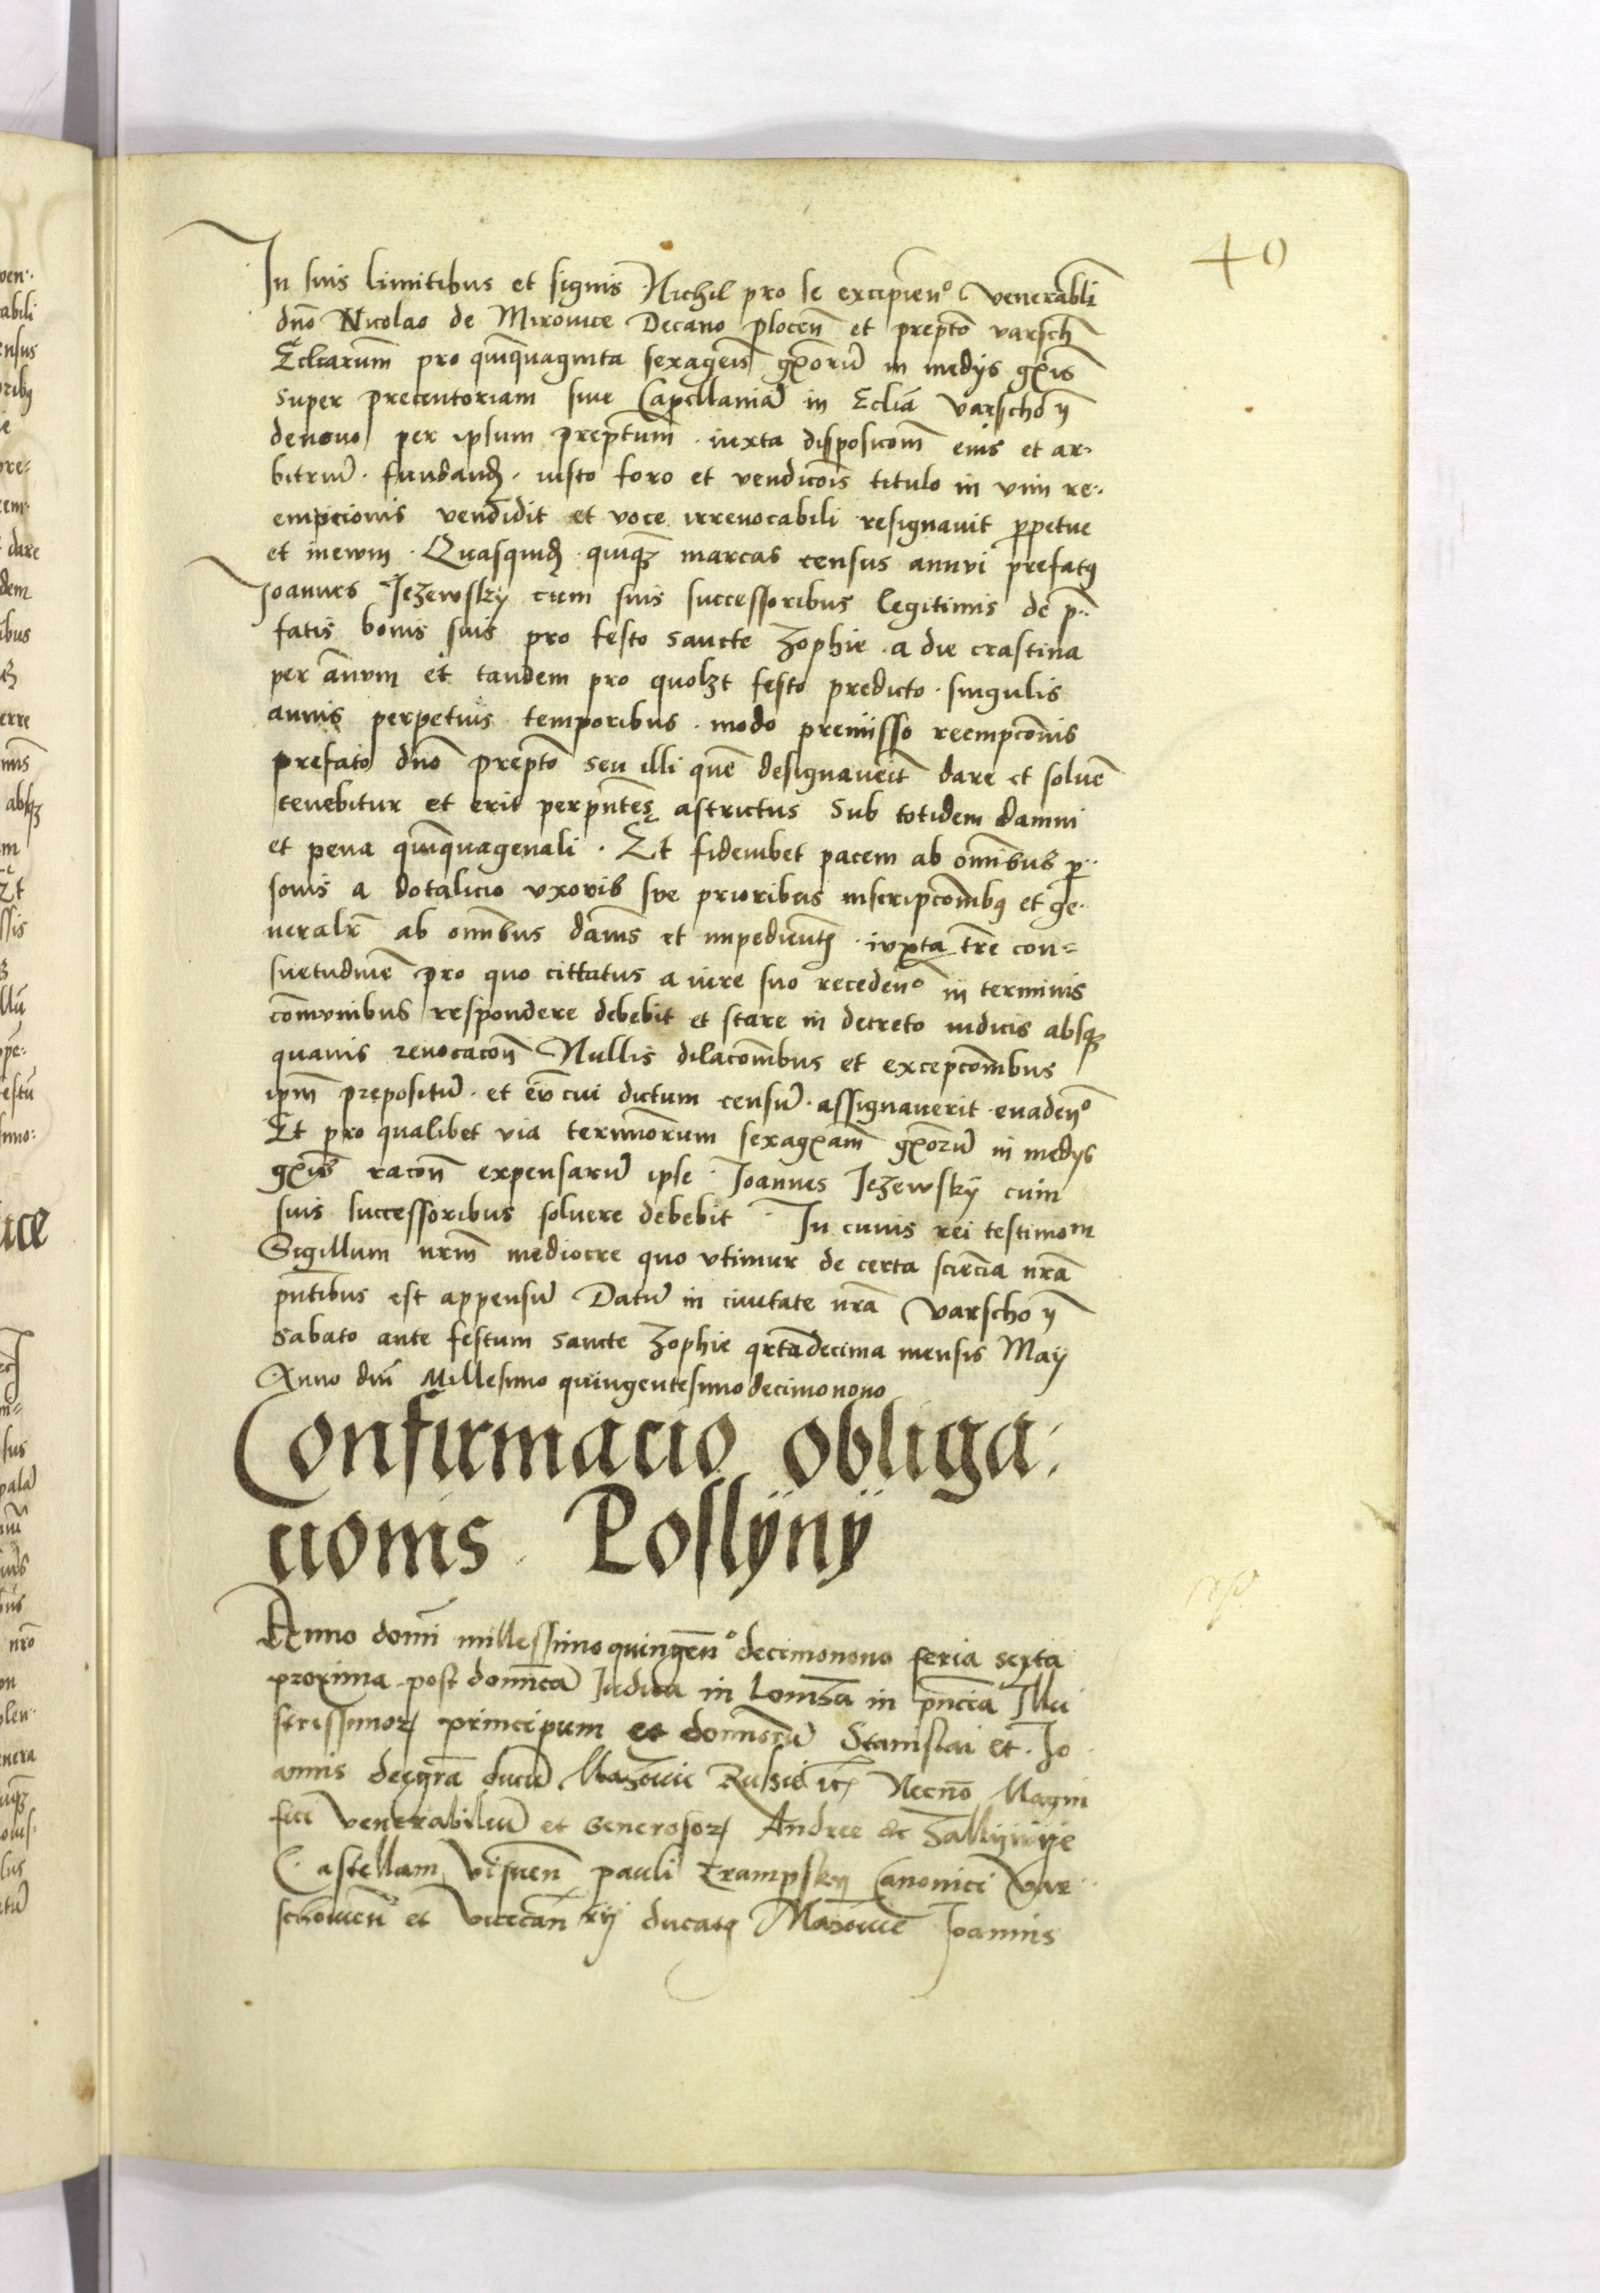 40
In suis limitibus et signis Nichil pro se excipien° Venerabli
dno Nicolao de Mirovice Decano plocen et prepto varsch
Ecliarum pro quiquaginta sexagenis gxorum in medys gxis
super precentoriam sive Capellaniam in Eclia varschoy
denovo per ipsum preptum · iuxta disposicom eius et ar·
bitrium · fundand · iusto foro et vendicois titulo in vim re··
empcionis vendidit et voce irrevocabili resignavit ppetue
et inewm · Quasquid · quiq marcas census annvi prefatq
Joannes Jezewsky cum suis successoribus legitimis de p··
fatis bonis suis pro festo sancte Zophie · a die crastina
per annvm et tandem pro quolzt festo predicto · singulis
annis perpetuis temporibus · modo premisso reempconis
prefato dno prepto seu illi quem designaverit dare et solve
tenebitur et erit perpntes astrictus Sub totidem damni
et pena quiquagenali · Et fideiubet pacem ab omnibus p··
sonis a dotalicio vxoris sve prioribus inscripcombq et ge·
neralr ab omnibus damis et impedient · iuxta tre con=
suetudinem Pro quo cittatus a iure suo receden° in terminis
comvnibus respondere debebit et stare in decreto iudicis absq
quavis revocacon Nullis dilacombus et excepcombus
ipm prepositum · et eum cui dictum censum · assignaverit · evaden°
Et pro qualibet via terminorum sexagxam gxorum in medys
gxis racon expensarum ipse · Joannes Jezewsky cum
suis successoribus solvere debebit · In cuius rei testimom
Sigillum nrm mediocre quo vtimur de certa sciencia nra
pntibus est appensum Datum in civitate nra Varschoy
Sabato ante festum Sancte Zophie qrtadecima mensis May
Anno dni Millesimo quingentesimodecimonono
Confirmacio obliga:
cionis Roslÿnÿ
Anno domi millessimoquingen° decimonono feria sexta
proxima post domica Iudica in Lomza in pncia Illu
strissimor principum et domorum Stanislai et Jo
annis deigra ducum Mazovie Rusie etc Necno Magni
fici Venerabilium et Generosor Andree de
Castellani Visnen pauli Trampsky Canonici Var
schovien et Vicecan rij ducatq Mazovie Joannis